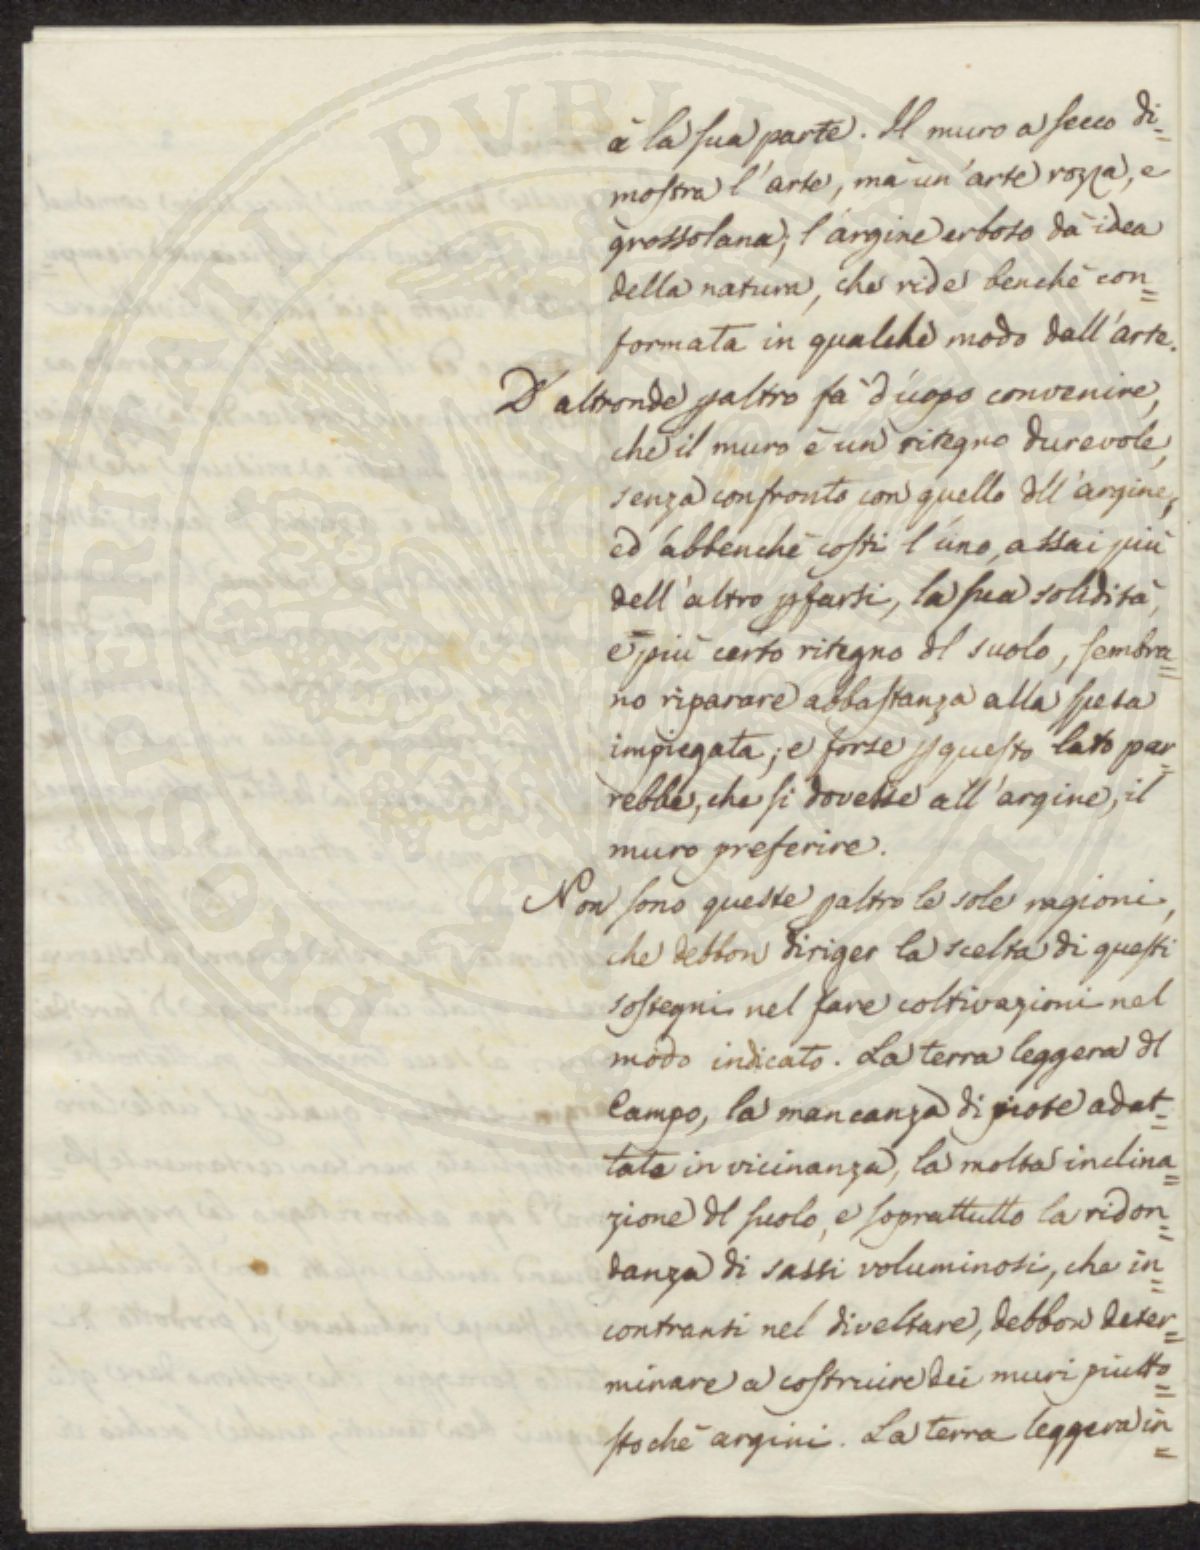 à la sua parte. Il muro a secco di=
mostra l'arte, mà un'arte rozza, e
grossolana; l'argine erboso dà idea
della natura, che ride benchè con=
formata in qualche modo dall'arte.
D'altronde paltro fà d'uopo convenire,
che il muro è un ritegno durevole,
senza confronto con quello dll'argine,
ed abbenchè costi l'uno, assai più
dell'altro p farsi, la sua solidità,
e più certo ritegno dl suolo, sembra=
no riparare abbastanza alla spesa
impiegata; e forse p questo lato par=
rebbe, che si dovesse all'argine, il
muro preferire.
Non sono queste paltro le sole ragioni,
che debbon diriger la scelta di questi
sostegni nel fare coltivazioni nel
modo indicato. La terra leggera dl
Campo, la mancanza di piote adat=
tate in vicinanza, la molta inclina=
zione dl suolo, e soprattutto la ridon=
danza di sassi voluminosi, che in=
contransi nel diveltare, debbon deter=
minare a costruire dei muri piutto=
stochè argini. La terra leggera in=
PROSPERITATI PUBLICAE